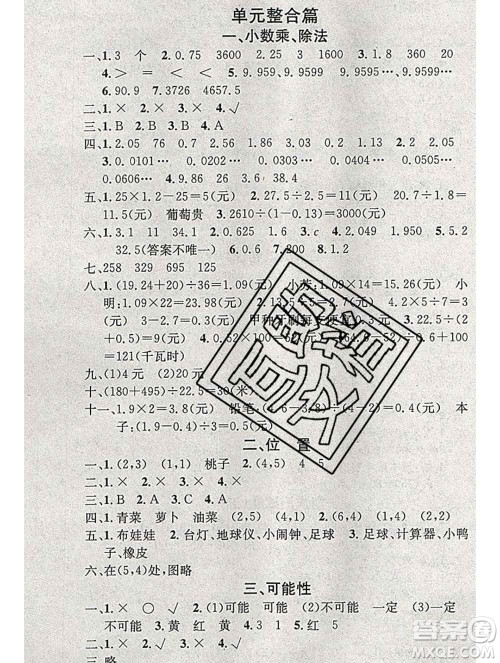 单元整合篇
一、小数乘、除法
一、1.3 个 2.0.75 3600 3.25 1.15
4.＞ ＝ ＜ ＞ 5.9.9599 9.9599…
6.0.90 7.3726 4657.5
二、1.× 2.× 3.× 4.√
三、1.B 2.B 3.B 4.A
四、1.2.05 76 0.7 2.2.05 1.86 0.2 1.3
3.0.0101… 0.0202… 0.0303… 0.0404…
0.0505… 0.0606…
五、1.25×1.2－25＝5(元) 2.30÷2.5＝12(元) 12＞
11.5(元) 葡萄贵 3.2610÷(1－0.13)＝3000(元)
六、1.3.1 11 34.1 2.0.6 3.c 4.2.049 1.95 5.2
32.5(答案不唯一) 6.0.6 7.200 8.1
七、258 329 695 125
八、1.(19.24＋20)÷36＝1.09(元) 小芳:1.09×14＝15.26(元) 小
明:1.09×22＝23.98(元) 2.13.5÷5＝2.7(元)
甲种牙刷每支便宜 3.22.5÷(2
＋0.5)＝9(元) 4.0.52×100＝52(元)
＝121(千瓦时)
九、(1)4元 (2)20元
十、(180＋495)÷22.5＝30(米)
十一、1.2÷3＝0.4(元) 铅笔:(2.4－1.6)÷2＝0.4(元) 本
子:(1.6－0.4)÷2＝0.6(元)
二、位 置
一、1.(2,3) (1,1) 桃子 2.(4,5) 4 5
二、1.× 2.× 3.× 4.√
三、1.A 2.A 3.C 4.A
四、1.青菜 萝卜 油菜 (2,1) (3,2) (4,2)
五、1.布娃娃 2.台灯、地球仪、小闹钟、足球 3.足球、计算器、小鸭
子、橡皮
六、在(5,4)处,图略
三、可能性
一、1.× ○ √ 2.(1)可能 可能 一定 (2)可能 一定
不可能 3.黄 红 黄 4.(1)6 (2)4
二、1.× 2.× 3.× 4.√
三、略